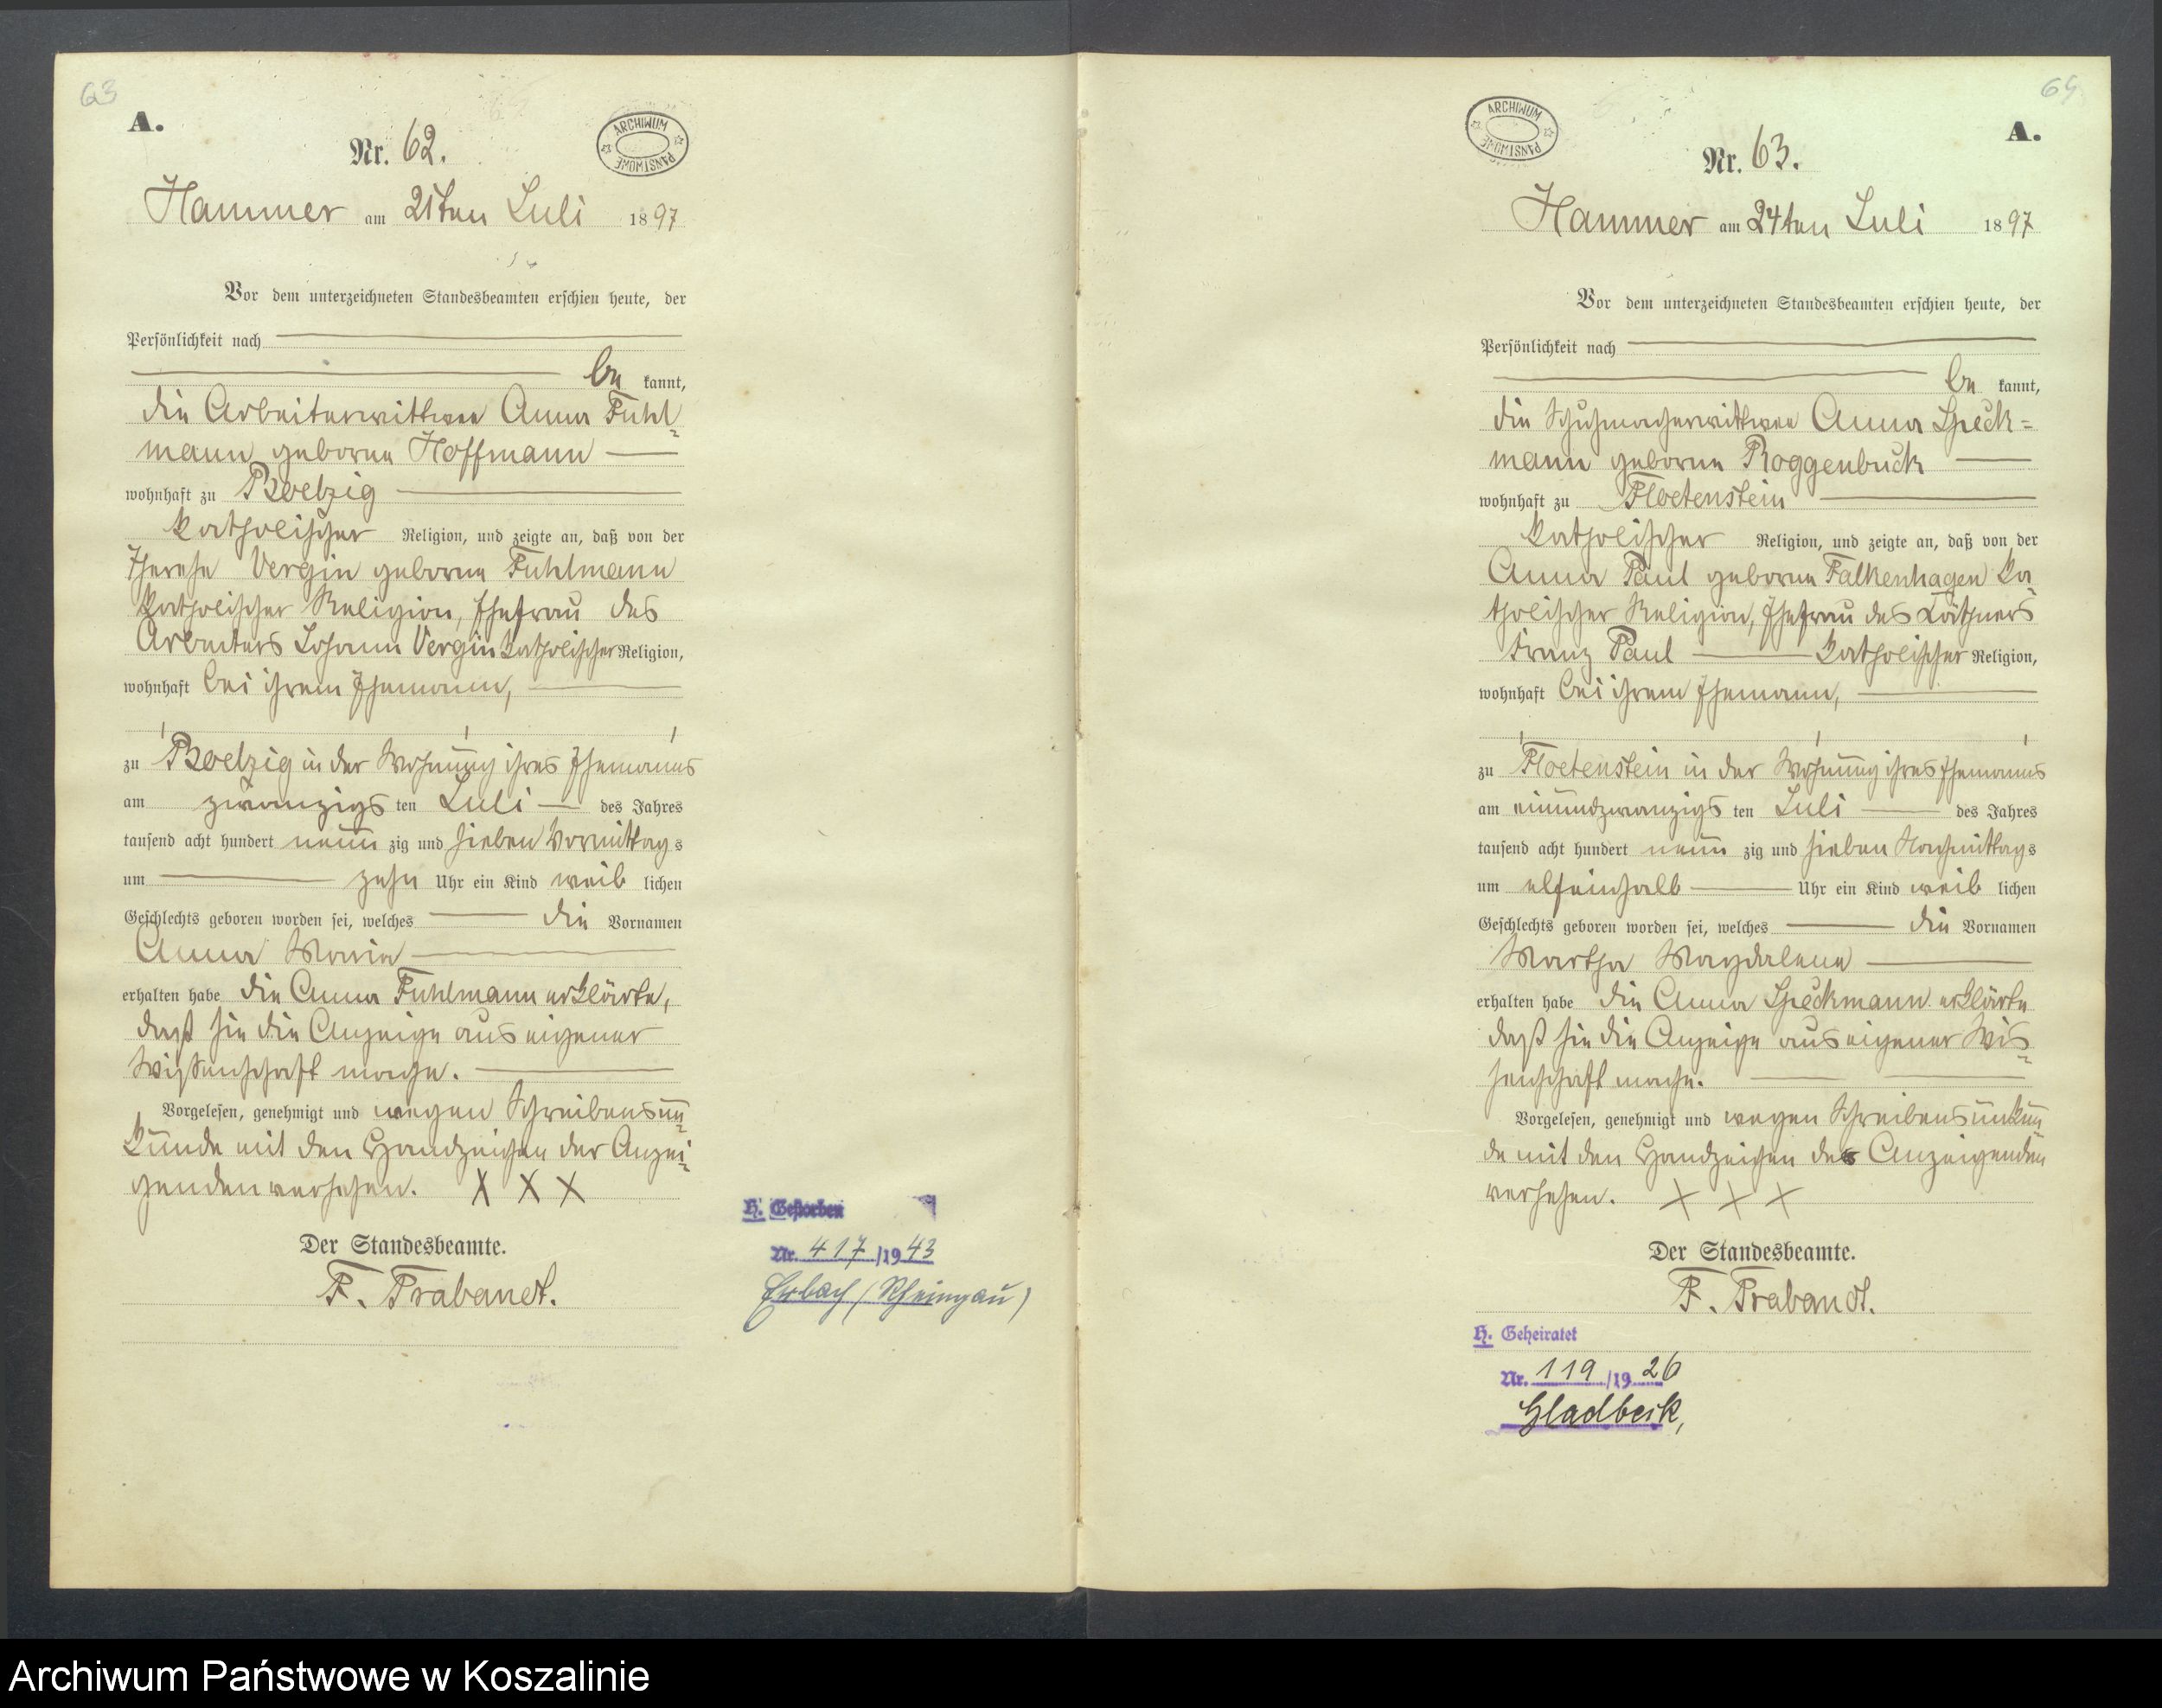 63
A.
Nr. 62.
ARCHIWUM PAŃSTWOWE
Hammer am 21ten Juli 1897
Vor dem unterzeichneten Standesbeamten erschien heute, der
Persönlichkeit nach
be kannt,
die Arbeiterwittwee Anna Fuhl-
mann geborne Hoffmann
wohnhaft zu Boelzig
katholischer Religion, und zeigte an, daß von der
Therese Vergin geborne Fuhlmann
katholischer Religion, Ehefrau des
Arbeiters Johann Vergin katholischer Religion,
wohnhaft bei ihrem Ehemann,
zu Boelzig in der Wohnung ihres Ehemanns
am zwanzigs ten Juli des Jahres
tausend acht hundert neun zig und sieben Vormittags
um zehn Uhr ein Kind weib lichen
Geschlechts geboren worden sei, welches die Vornamen
Anna Maria
erhalten habe die Anna Fuhlmann erklärte,
daß sie die Anzeige aus eigener
Wissenschaft mache.
Vorgelesen, genehmigt und wegen Schreibensun-
kunde mit den Handzeichen der Anzei-
genden versehen. X X X
Der Standesbeamte.
F. Trabandt.
H. Gestorben
Nr. 417/1943
Erbach (Rheingau)
64
A.
Nr. 63.
ARCHIWUM PAŃSTWOWE
Hammer am 24ten Juli 1897
Vor dem unterzeichneten Standesbeamten erschien heute, der
Persönlichkeit nach
be kannt,
die Schuhmacherwittwee Anna Speck=
mann geborne Roggenbuck
wohnhaft zu Floetenstein
katholischer Religion, und zeigte an, daß von der
Anna Paul geborne Falkenhagen ka
tholischer Religion, Ehefrau des Käthners
Franz Paul katholischer Religion,
wohnhaft bei ihrem Ehemann,
zu Floetenstein in der Wohnung ihres Ehemanns
am einundzwanzigs ten Juli des Jahres
tausend acht hundert neun zig und sieben Nachmittags
um elfeinhalb Uhr ein Kind weib lichen
Geschlechts geboren worden sei, welches die Vornamen
Martha Magdalene
erhalten habe die Anna Speckmann erklärte
daß sie die Anzeige aus eigener Wis-
senschaft mache.
Vorgelesen, genehmigt und wegen Schreibensunkun
de mit den Handzeichen der Anzeigenden
versehen. X X X
Der Standesbeamte.
F. Trabandt.
H. Geheiratet
Nr. 119/1926
Gladbeck,
Archiwum Państwowe w Koszalinie